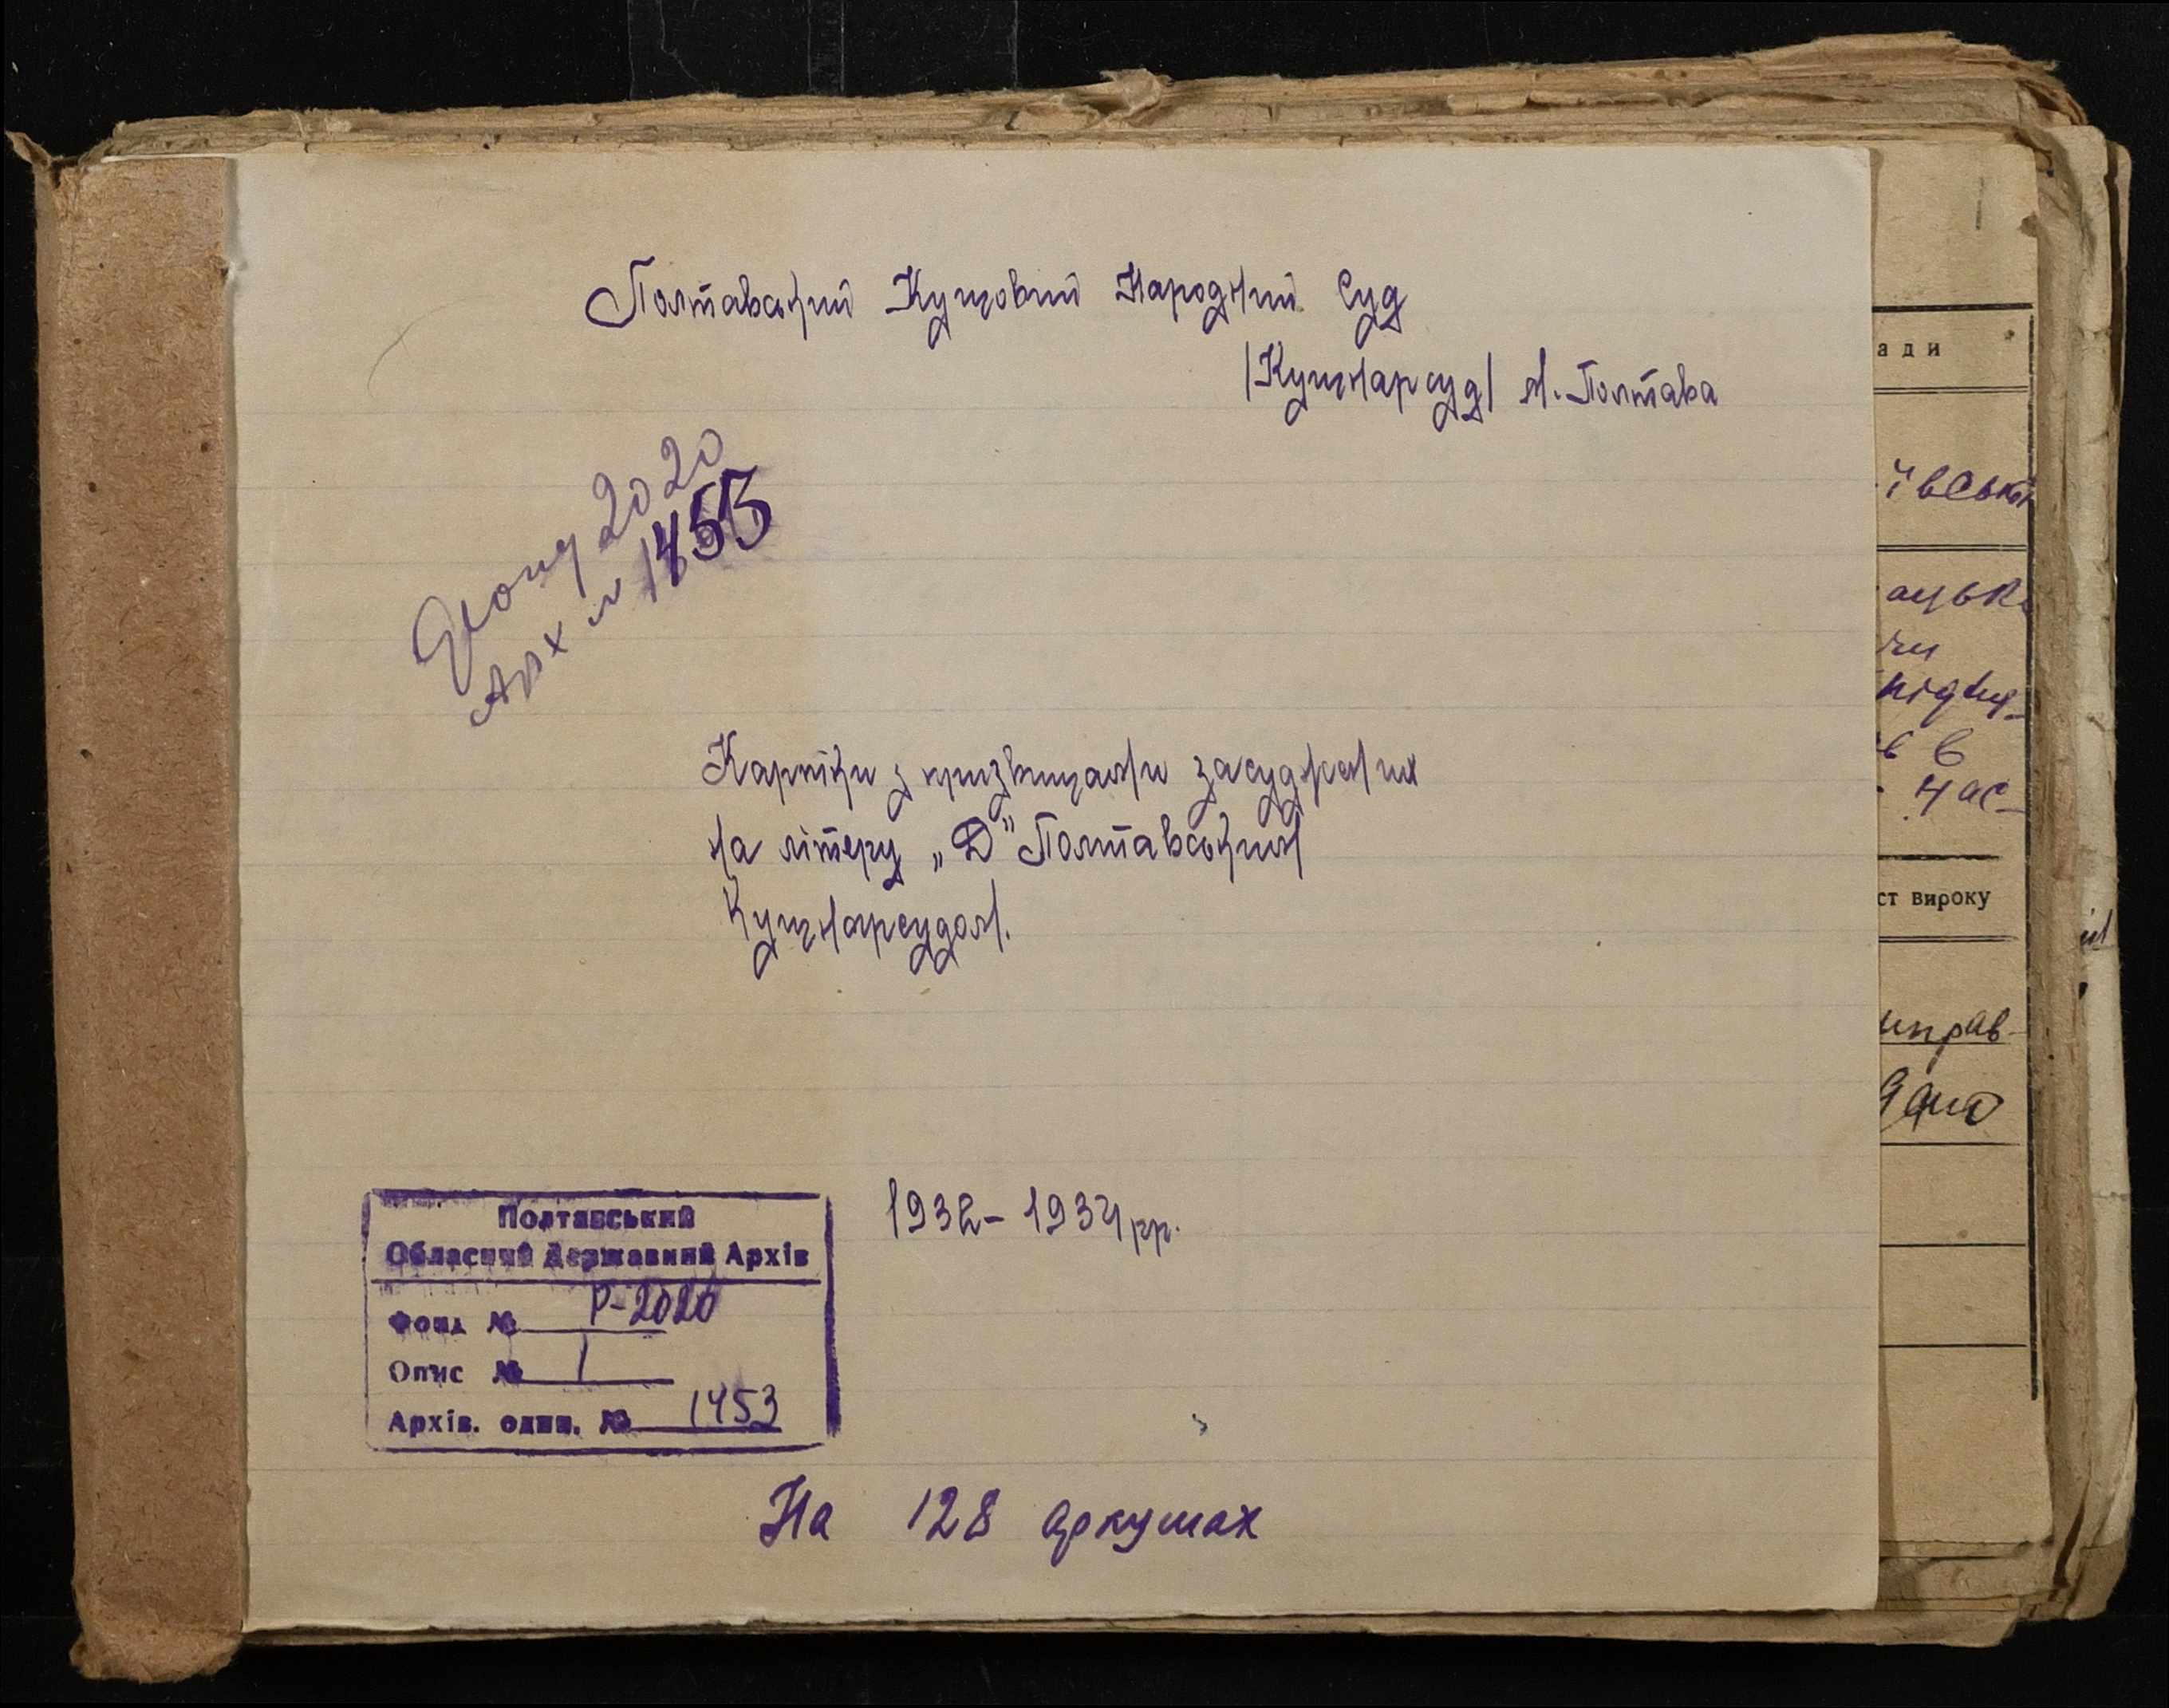 Полтавський Кущовий Народний Суд
/Кущнарсуд/ м. Полтава
Фонд 2020
Арх №
Картки з призвищами засуджених
на літеру „Д" Полтавським
Кущнарсудом.
1932-1934 рр.
Полтавський
Обласний Державний Архів
Фонд № Р-2020
Опис № 1
Архів. один. № 1453
На 128 аркушах
ади
ївськ
ст вироку